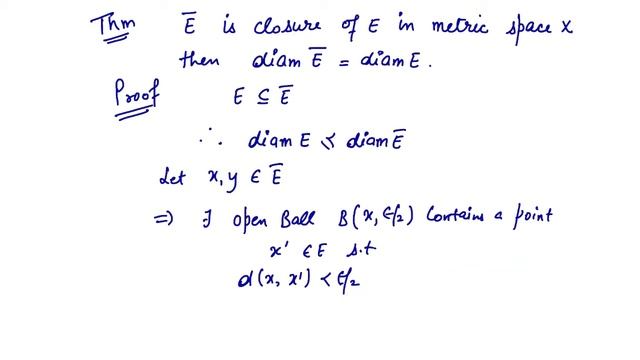 Thm E̅ is closure of E in metric space X
then diam E̅ = diam E.
Proof E ⊆ E̅
∴ diam E ≤ diam E̅
Let x, y ∈ E̅
⇒ ∃ open Ball B(x, ε/2) contains a point
x' ∈ E s.t
d(x, x') < ε/2